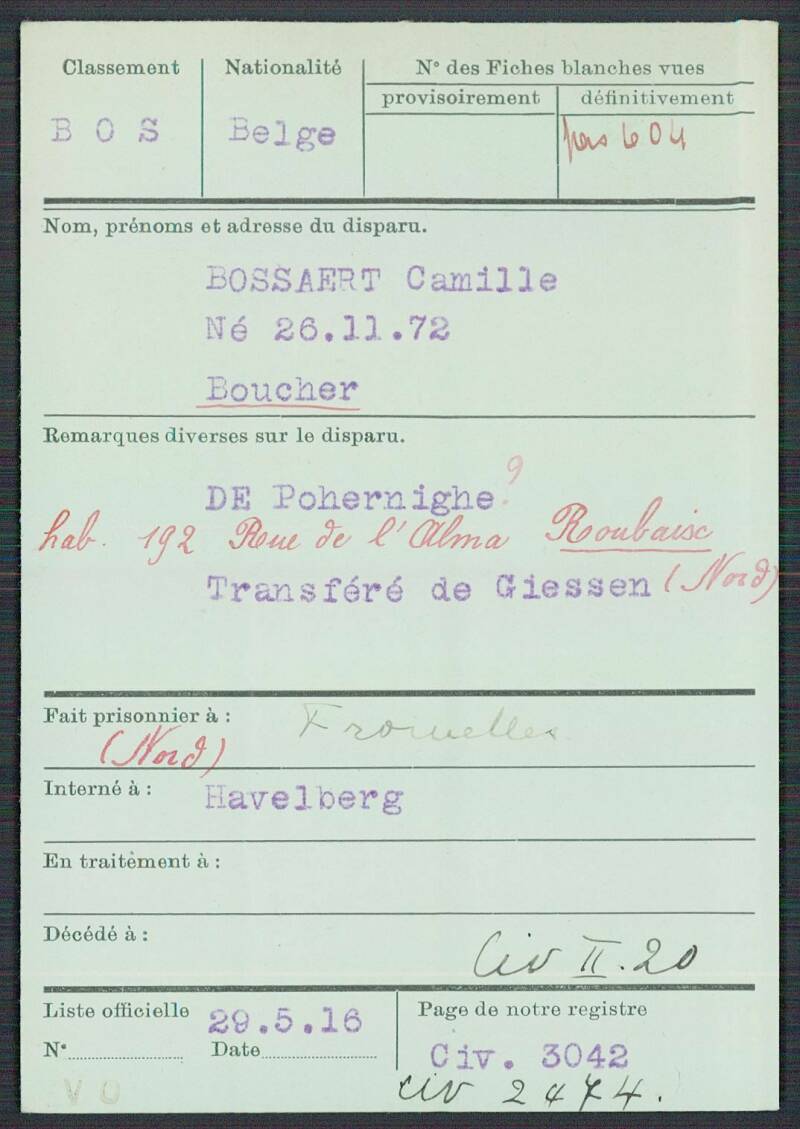 Classement
Nationalité
N° des Fiches blanches vues
provisoirement
définitivement
B O S
Belge
Nom, prénoms et adresse du disparu.
BOSSAERT Camille
Né 26.11.72
Boucher
Remarques diverses sur le disparu.
DE Pohernighe ?
hab. 192 Rue de l'Alma Roubaix
Transféré de Giessen (Nord)
Fait prisonnier à : Fromelles
(Nord)
Interné à : Havelberg
En traitement à :
Décédé à :
Civ II. 20
Liste officielle 29.5.16
N° Date
Page de notre registre
Civ. 3042
civ 2474.